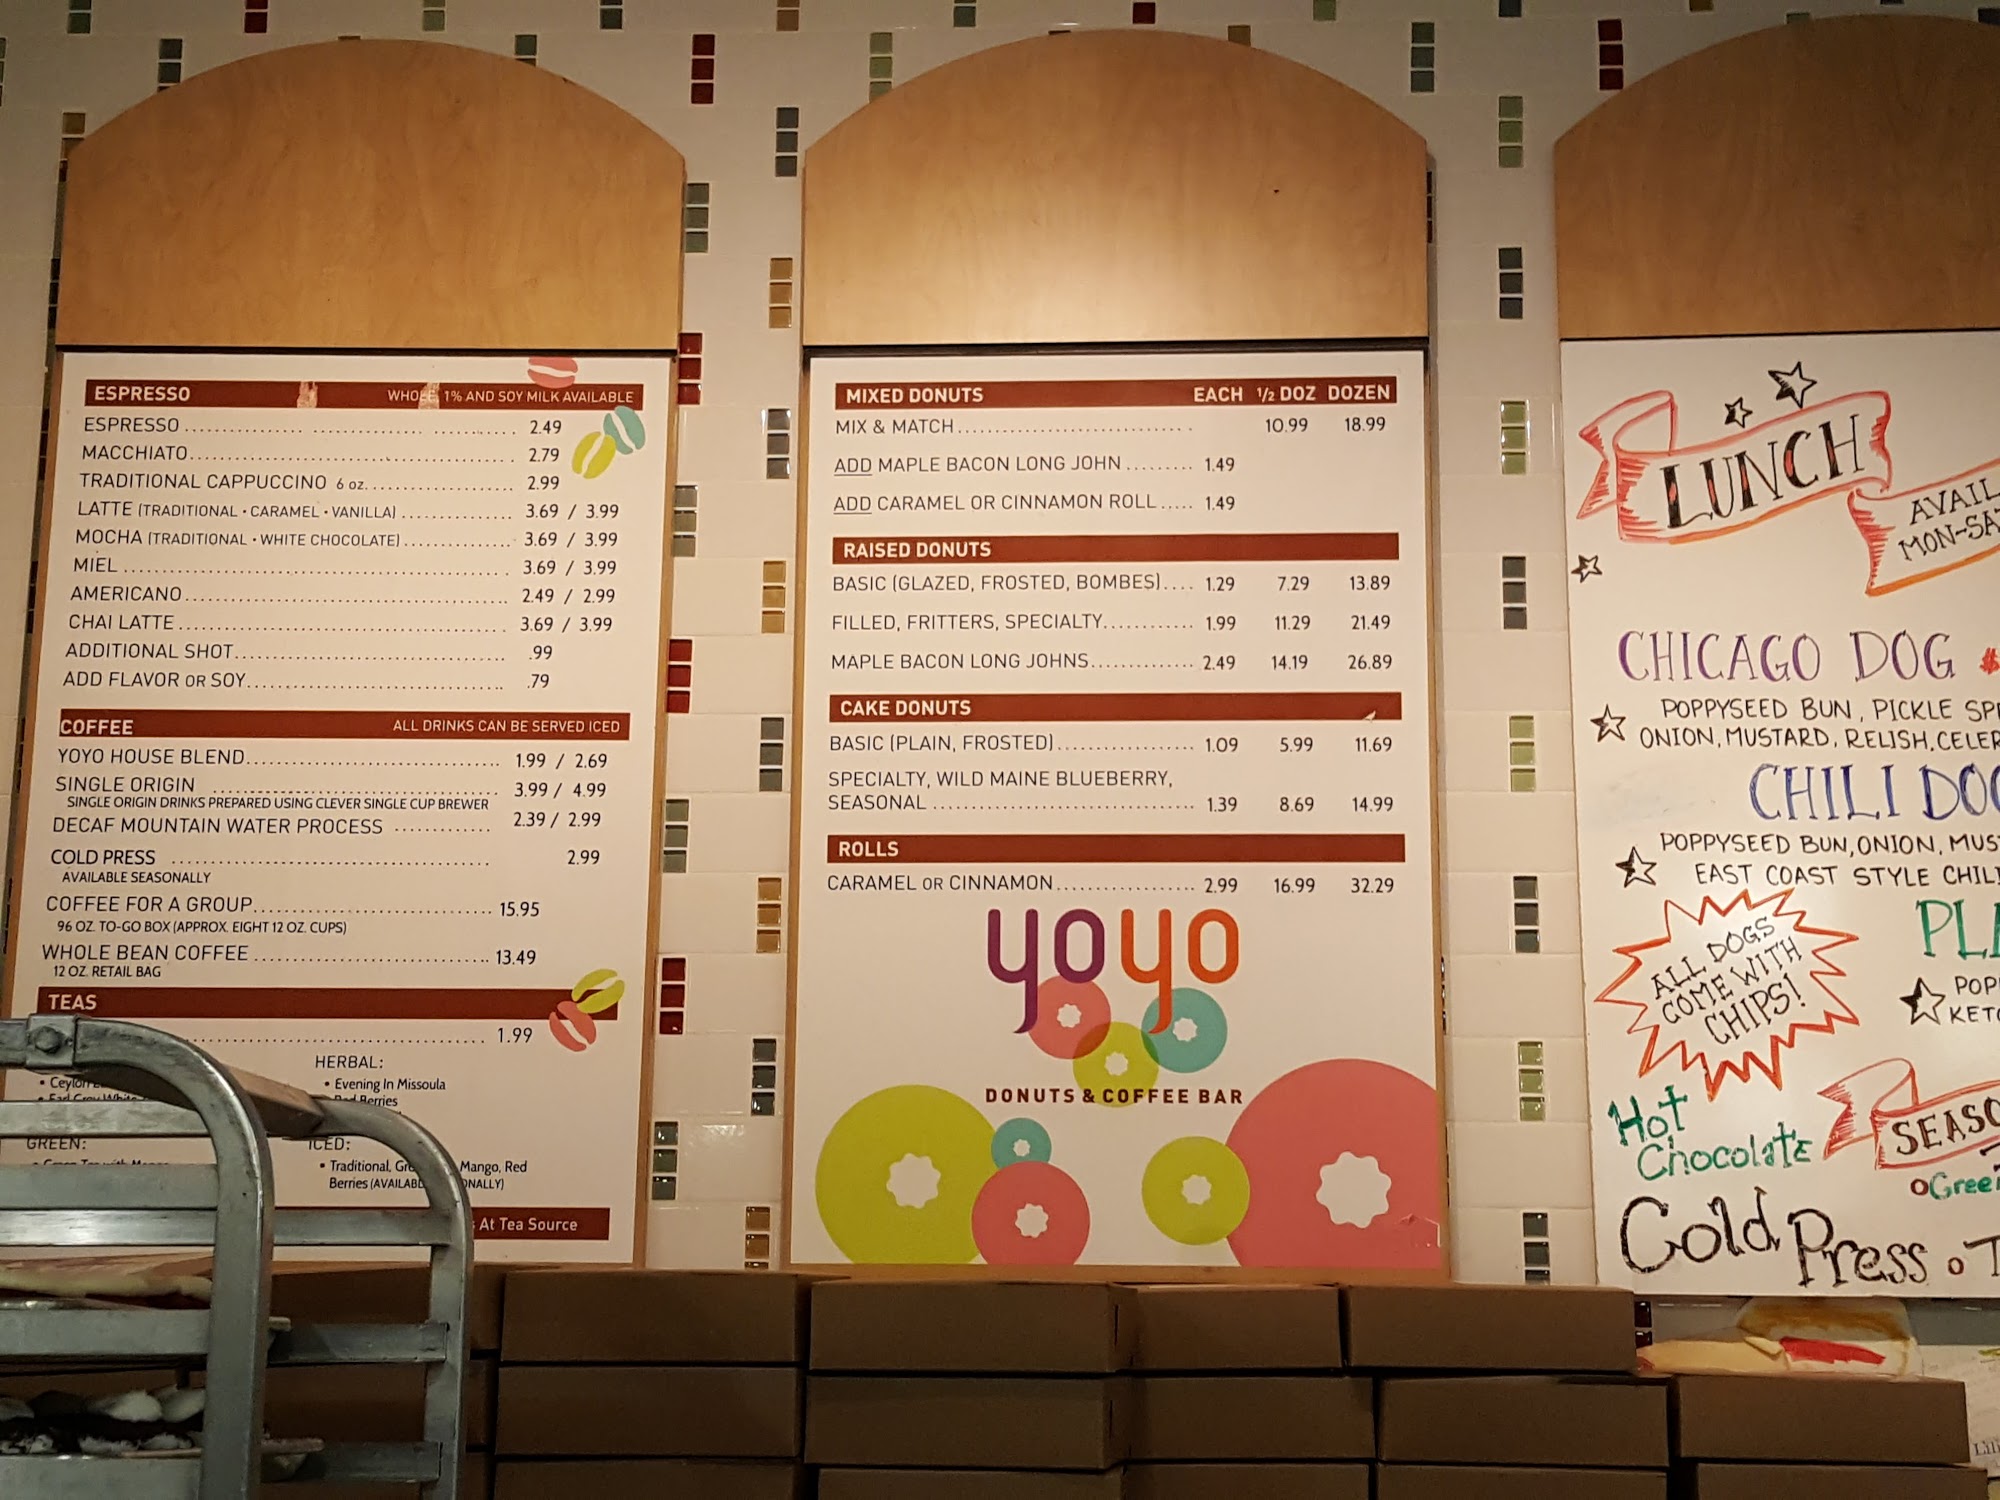 ESPRESSO WHOLE, 1% AND SOY MILK AVAILABLE
ESPRESSO 2.49
MACCHIATO 2.79
TRADITIONAL CAPPUCCINO 6 oz. 2.99
LATTE (TRADITIONAL • CARAMEL • VANILLA) 3.69 / 3.99
MOCHA (TRADITIONAL • WHITE CHOCOLATE) 3.69 / 3.99
MIEL 3.69 / 3.99
AMERICANO 2.49 / 2.99
CHAI LATTE 3.69 / 3.99
ADDITIONAL SHOT .99
ADD FLAVOR OR SOY .79
COFFEE ALL DRINKS CAN BE SERVED ICED
YOYO HOUSE BLEND 1.99 / 2.69
SINGLE ORIGIN 3.99 / 4.99
SINGLE ORIGIN DRINKS PREPARED USING CLEVER SINGLE CUP BREWER
DECAF MOUNTAIN WATER PROCESS 2.39 / 2.99
COLD PRESS 2.99
AVAILABLE SEASONALLY
COFFEE FOR A GROUP 15.95
96 OZ. TO-GO BOX (APPROX. EIGHT 12 OZ. CUPS)
WHOLE BEAN COFFEE 13.49
12 OZ. RETAIL BAG
TEAS
1.99
• Ceylon
• Earl Grey White
GREEN:
HERBAL:
• Evening In Missoula
Berries
ICED:
• Traditional, Mango, Red
Berries
At Tea Source
MIXED DONUTS EACH ½ DOZ DOZEN
MIX & MATCH 10.99 18.99
ADD MAPLE BACON LONG JOHN 1.49
ADD CARAMEL OR CINNAMON ROLL 1.49
RAISED DONUTS
BASIC (GLAZED, FROSTED, BOMBES) 1.29 7.29 13.89
FILLED, FRITTERS, SPECIALTY 1.99 11.29 21.49
MAPLE BACON LONG JOHNS 2.49 14.19 26.89
CAKE DONUTS
BASIC (PLAIN, FROSTED) 1.09 5.99 11.69
SPECIALTY, WILD MAINE BLUEBERRY,
SEASONAL 1.39 8.69 14.99
ROLLS
CARAMEL OR CINNAMON 2.99 16.99 32.29
yoyo
DONUTS & COFFEE BAR
LUNCH
AVAIL
MON-SAT
CHICAGO DOG
POPPYSEED BUN, PICKLE
ONION, MUSTARD, RELISH, CELER
CHILI DOG
POPPYSEED BUN, ONION, MUST
EAST COAST STYLE CHILI
ALL DOGS
COME WITH
CHIPS!
Hot
Chocolate
Cold Press